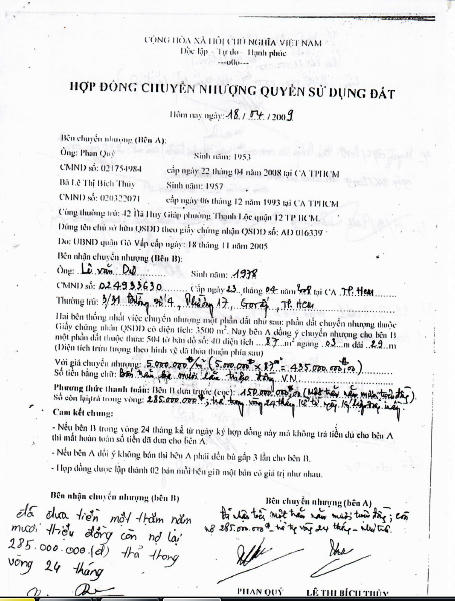 CỘNG HÒA XÃ HỘI CHỦ NGHĨA VIỆT NAM
Độc lập – Tự do – Hạnh phúc
---o0o---
HỢP ĐỒNG CHUYỂN NHƯỢNG QUYỀN SỬ DỤNG ĐẤT
Hôm nay ngày: 18 / 04 / 2009
Bên chuyển nhượng (Bên A):
Ông: Phan Quý Sinh năm: 1953
CMND số: 021754984 cấp ngày 22 tháng 04 năm 2008 tại CA TPHCM
Bà Lê Thị Bích Thủy Sinh năm: 1957
CMND số: 020322071 cấp ngày 06 tháng 12 năm 1993 tại CA TPHCM
Cùng thường trú: 42 Hà Huy Giáp phường Thạnh Lộc quận 12 TP HCM.
Đứng tên chủ sở hữu QSDĐ theo giấy chứng nhận QSDĐ số: AD 016339
Do: UBND quận Gò Vấp cấp ngày: 18 tháng 11 năm 2005
Bên nhận chuyển nhượng (Bên B):
Ông: Lê văn Dự Sinh năm: 1978
CMND số: 024933630 Cấp ngày 23 tháng 04 năm 2008 tại CA TP.HCM
Thường trú: 3/31 số 4, Phường 17, Gò Vấp, TP. HCM
Hai bên thống nhất việc chuyển nhượng một phần đất như sau: phần đất chuyển nhượng thuộc
Giấy chứng nhận QSDĐ có diện tích: 3500 m². Nay bên A đồng ý chuyển nhượng cho bên B
một phần đất thuộc thửa: 504 tờ bản đồ số: 40 diện tích ...87...m² ngang ..03..m dài ..29..m
(Diện tích trên tượng theo hình vẽ đã thỏa thuận phía sau)
Với giá chuyển nhượng: 5.000.000đ/m² (5.000.000đ x 87m² = 435.000.000,00đ)
Số tiền bằng chữ: Bốn trăm ba mươi lăm triệu đồng V.N
Phương thức thanh toán: Bên B đưa trước (cọc): 150.000.000 (Một trăm năm mươi triệu đồng)
Số còn lại trả trong vòng: 285.000.000đ, trả trong vòng 24 tháng kể từ ngày ký hợp đồng này.
- Cam kết chung:
- Nếu bên B trong vòng 24 tháng kể từ ngày ký hợp đồng này mà không trả tiền đủ cho bên A
thì mất hoàn toàn số tiền đã đưa cho bên A.
- Nếu bên A đổi ý không bán thì bên A phải đền bù gấp 3 lần cho bên B.
- Hợp đồng được lập thành 02 bản mỗi bên giữ một bản có giá trị như nhau.
Bên nhận chuyển nhượng (bên B) Bên chuyển nhượng (bên A)
đã đưa tiền một trăm năm
mươi triệu đồng còn nợ lại
285.000.000 (đ) trả trong
vòng 24 tháng
Đã nhận tiền một trăm năm mươi triệu đồng, còn
nợ 285.000.000đ trả vòng 24 tháng
PHAN QUÝ LÊ THỊ BÍCH THỦY